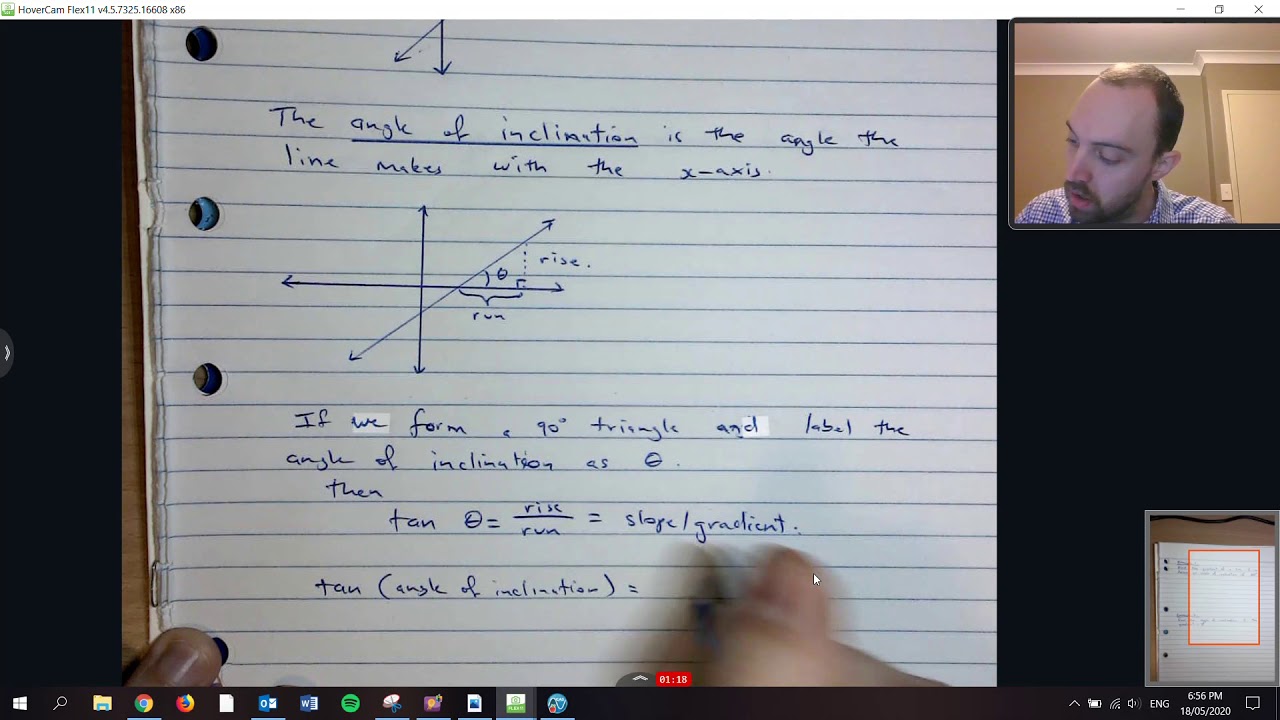 HoverCam Flex11 v4.5.7325.16608 x86
The angle of inclination is the angle the
line makes with the x-axis.
θ
rise.
run
If we form a 90° triangle and label the
angle of inclination as θ.
then
tan θ = rise/run = slope/gradient.
tan (angle of inclination) =
01:18
ENG
6:56 PM
18/05/2020